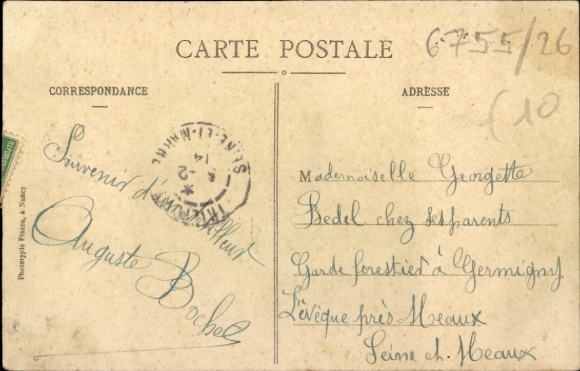 CARTE POSTALE
6755/26
(10
CORRESPONDANCE
ADRESSE
Souvenir
Auguste Bochel
SEINE-ET-MARNE
Phototypie Finzco, à Nancy
Mademoiselle Georgette
Bedel chez ses parents
Garde forestier à Germigny
L'Évêque près Meaux
Seine et. Meaux